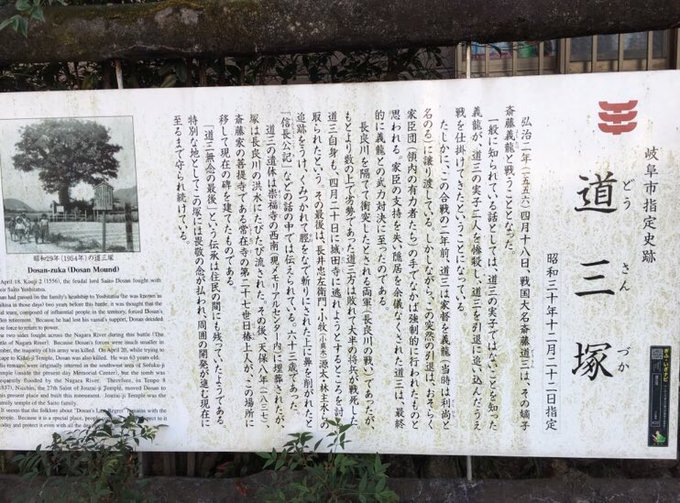 岐阜市指定史跡
道三塚
どうさんづか
昭和三十年十二月二十二日指定
弘治二年(一五五六)四月十八日、戦国大名斎藤道三は、その嫡子
斎藤義龍と戦うこととなった。
一般に知られている話としては、道三の実子ではないことを知った
義龍が、道三の実子二人を惨殺し、道三を引退に追い込んだうえ
戦を仕掛けてきたということになっている。
たしかに、この合戦の二年前、道三は家督を義龍(当時は利尚と
名のる)に譲り渡している。しかしながら、この突然の引退は、おそらく
家臣団(領内の有力者たち)の手でなかば強制的に行われたものと
思われる。家臣の支持を失い隠居を余儀なくされた道三は、最終
的に義龍との武力対決に至ったのである。
長良川を隔てて衝突したとされる両軍(長良川の戦い)であったが、
もとより数の上で劣勢であった道三方は敗れて大半の兵が戦死した
道三自身も、四月二十日に城田寺に逃れようとするところを討ち
取られたという。その最後は、長井忠左衛門・小牧(小真木)源太・林主水の
追跡をうけ、くみつかれて脛をなで斬りにされた上に鼻を削がれたと
『信長公記』などの話の中では伝えられている。六十三歳であった。
道三の遺体は崇福寺の西南(現メモリアルセンター内)に埋葬されたが、
塚は長良川の洪水にたびたび流された。その後、天保八年(一八三七)、
斎藤家の菩提寺である常在寺の第二十七世日椿上人が、この場所に
移して現在の碑を建てたものである。
「道三無念の最後」という伝承は住民の間にも残っていたようである。
特別な地としてこの塚には畏敬の念がはらわれ、周囲の開発が進む現在に
至るまで守られ続けている。
昭和29年(1954年)の道三塚
Dosan-zuka (Dosan Mound)
April 18, Kouji 2 (1556), the feudal lord Saito Dosan fought with
his Saito Yoshitatsu.
san had passed on the family's headship to Yoshitatsu (he was known as
shihisa in those days) two years before this battle, it was thought that the
local team, composed of influential people in the territory, forced Dosan's
den retirement. Because he had lost his vassal's support, Dosan decided
use force to return to power.
he two sides fought across the Nagara River during this battle [The
attle of Nagara River]. Because Dosan's forces were much smaller in
umber, the majority of his army was killed. On April 20, while trying to
cape to Kidenji Temple, Dosan was also killed. He was 63 years old.
his remains were originally interred in the southwest area of Sofuku-ji
emple (inside the present day Memorial Center), but the tomb was
equently flooded by the Nagara River. Therefore, in Tenpo 8
1837), Nicchin, the 27th Saint of Jouzai-ji Temple, moved Dosan to
his present place and built this monument. Jouzai-ji Temple was the
amily temple of the Saito family.
It seems that the folklore about "Dosan's
remains with the
people. Because it is a special place, people
respect to it
oday and protect it even with all the
ぎふ・いざナビ